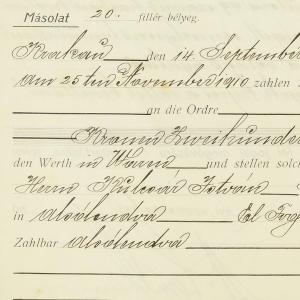 Másolat 20. fillér bélyeg.
Krakau den 14. September
Am 25ten November 1910 zahlen
an die Ordre
Kronen Zweihunder
den Werth in Waren und stellen solch
Herrn Kulcsár István
in Alsólendva
Zahlbar Alsólendva